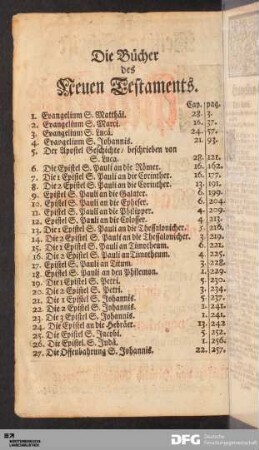 Die Bücher
des
Neuen Testaments.
Cap. pag.
1. Evangelium S. Matthäi. 28. 3.
2. Evangelium S. Marci. 16. 37.
3. Evangelium S. Lucä. 24. 57.
4. Evangelium S. Johannis. 21. 93.
5. Der Apostel Geschichte/ beschrieben von
S. Luca. 28. 121.
6. Die Epistel S. Pauli an die Römer. 16. 162.
7. Die 1 Epistel S. Pauli an die Corinther. 16. 177.
8. Die 2 Epistel S. Pauli an die Corinther. 13. 191.
9. Epistel S. Pauli an die Galater. 6. 199.
10. Epistel S. Pauli an die Epheser. 6. 204.
11. Epistel S. Pauli an die Philipper. 4. 209.
12. Epistel S. Pauli an die Colosser. 4. 213.
13. Die 1 Epistel S. Pauli an die Thessalonicher. 5. 216.
14. Die 2 Epistel S. Pauli an die Thessalonicher. 3. 219.
15. Die 1 Epistel S. Pauli an Timotheum. 6. 221.
16. Die 2 Epistel S. Pauli an Timotheum. 4. 225.
17. Epistel S. Pauli an Titum. 3. 228.
18. Epistel S. Pauli an den Philemon. 1. 229.
19. Die 1 Epistel S. Petri. 5. 230.
20. Die 2 Epistel S. Petri. 3. 234.
21. Die 1 Epistel S. Johannis. 5. 237.
22. Die 2 Epistel S. Johannis. 1. 241.
23. Die 3 Epistel S. Johannis. 1. 241.
24. Die Epistel an die Hebräer. 13. 242
25. Die Epistel S. Jacobi. 5. 252.
26. Die Epistel S. Judä. 1. 256.
27. Die Offenbahrung S. Johannis. 22. 257.
DFG Deutsche
Forschungsgemeinschaft